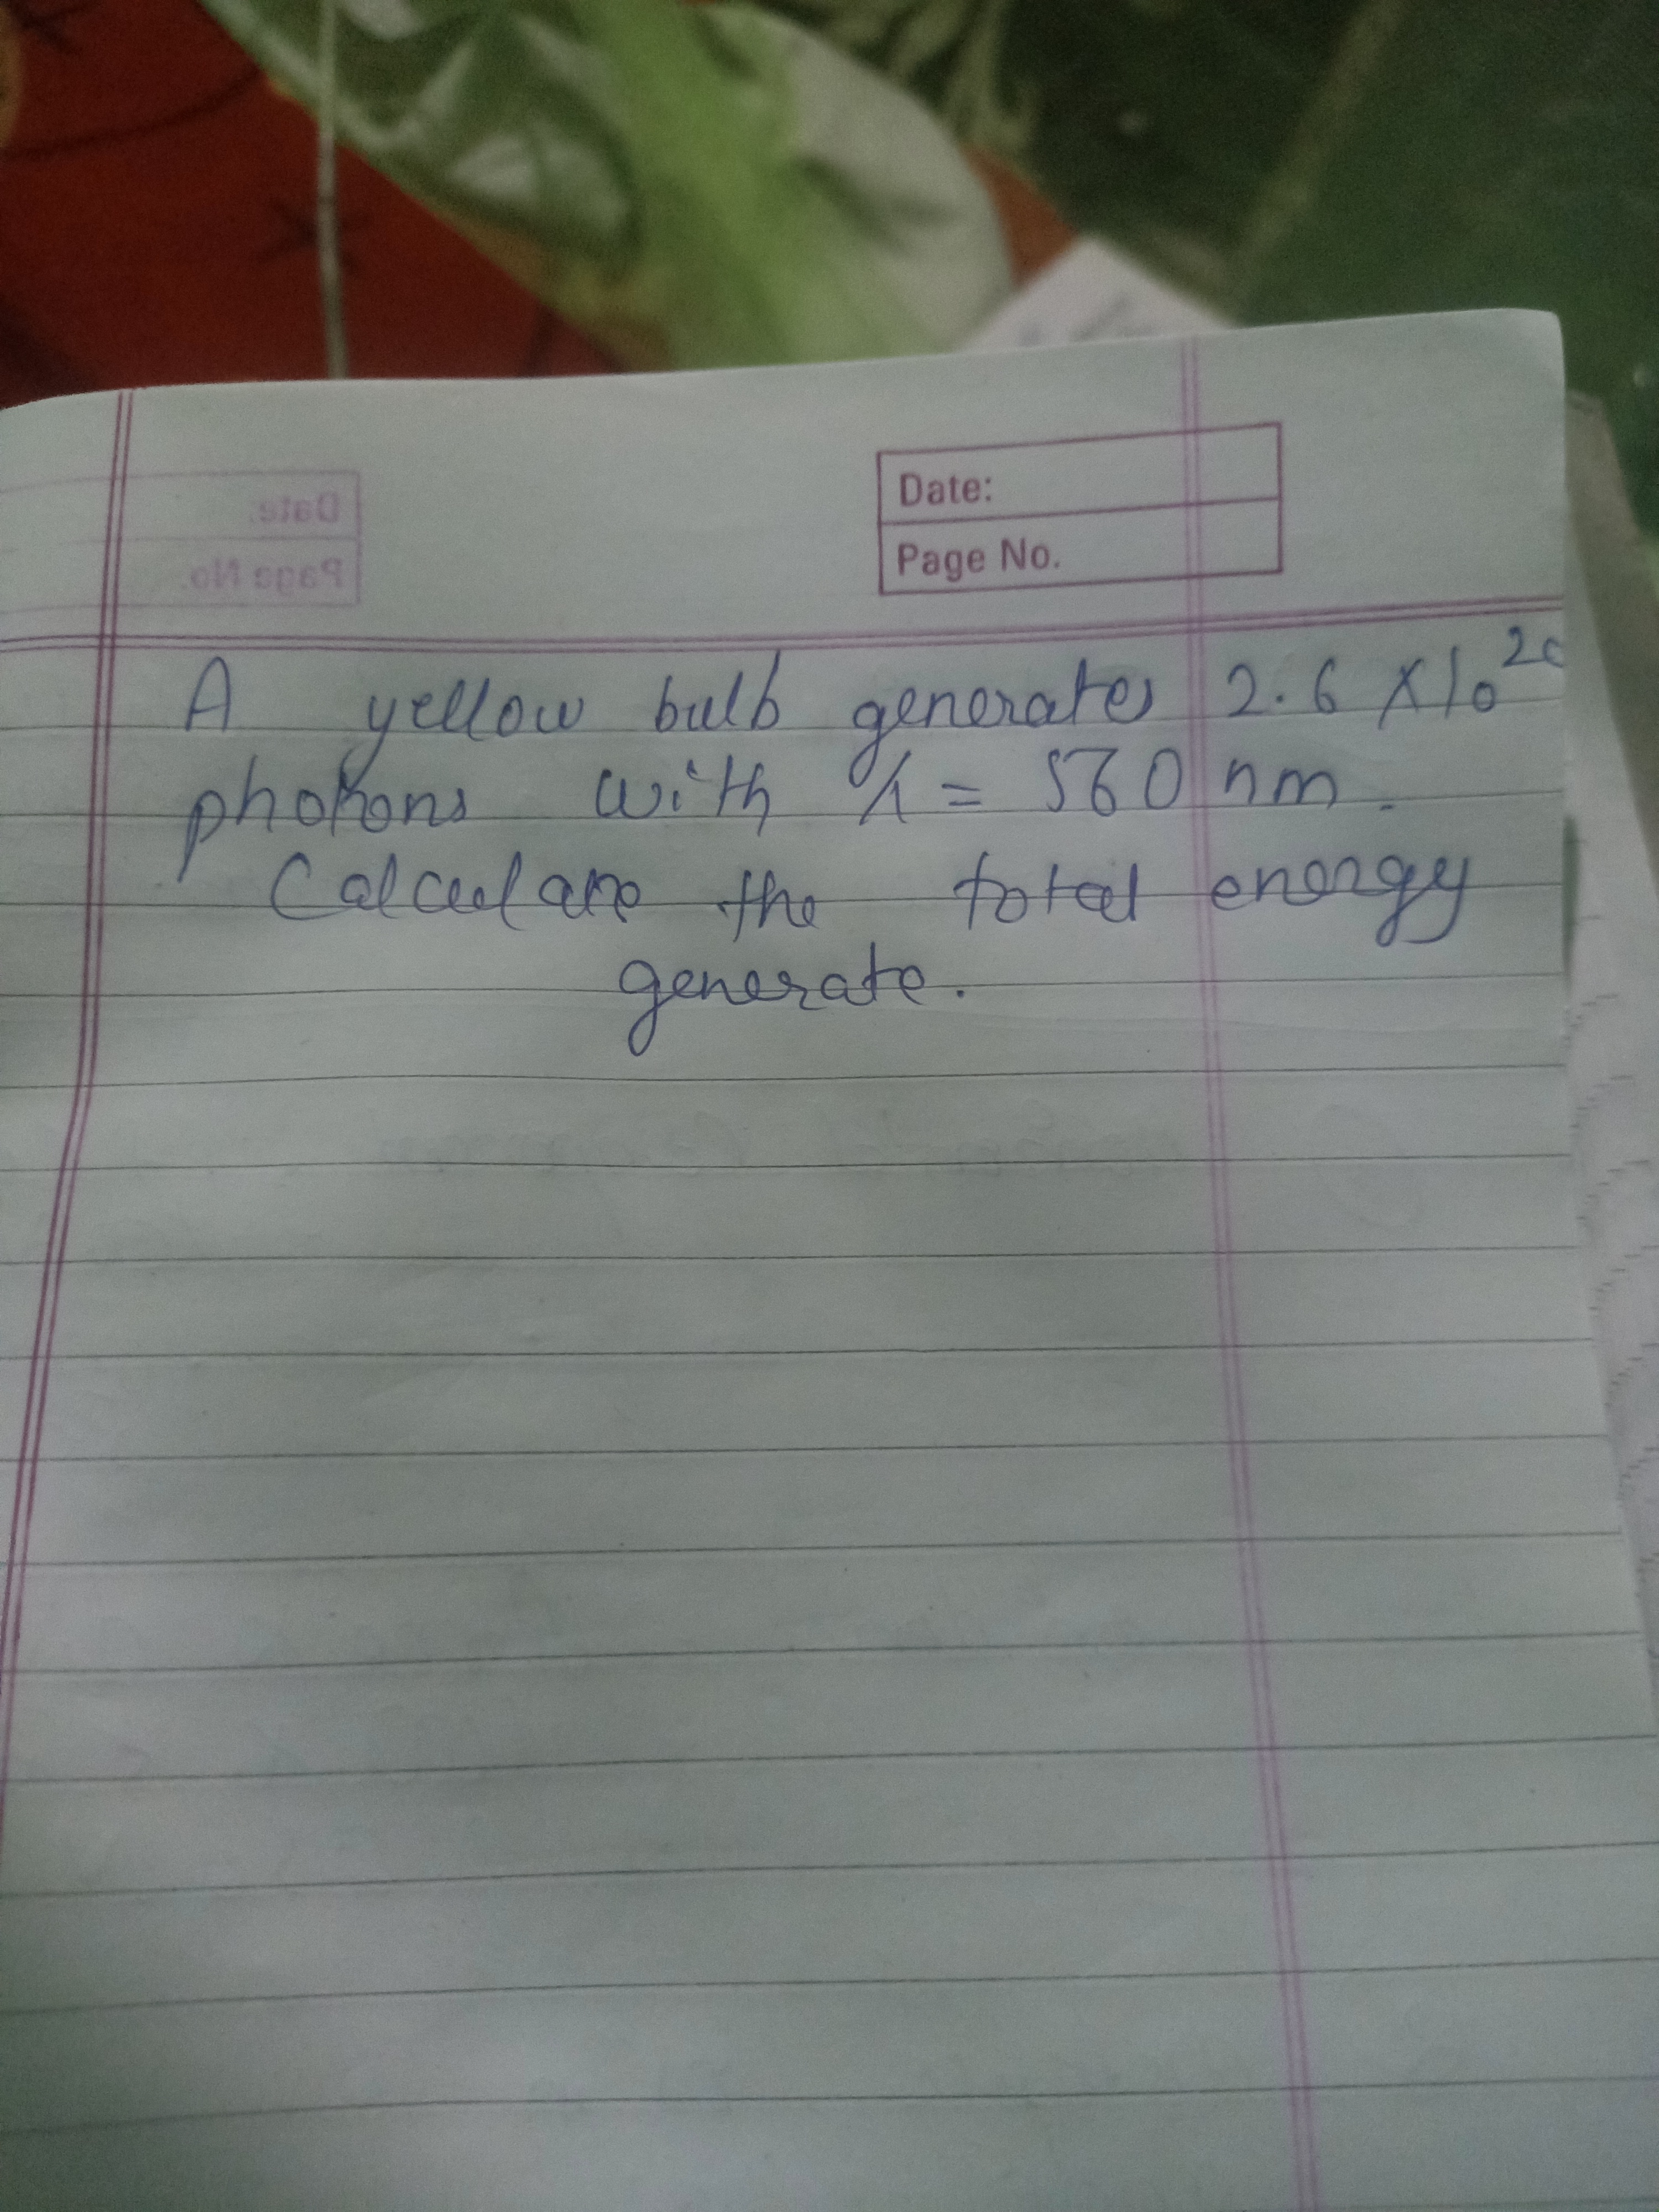 Date:
Page No.
Date:
Page No.
A yellow bulb generates 2.6 × 10²⁰
photons with λ = 560 nm.
Calculate the total energy
generate.